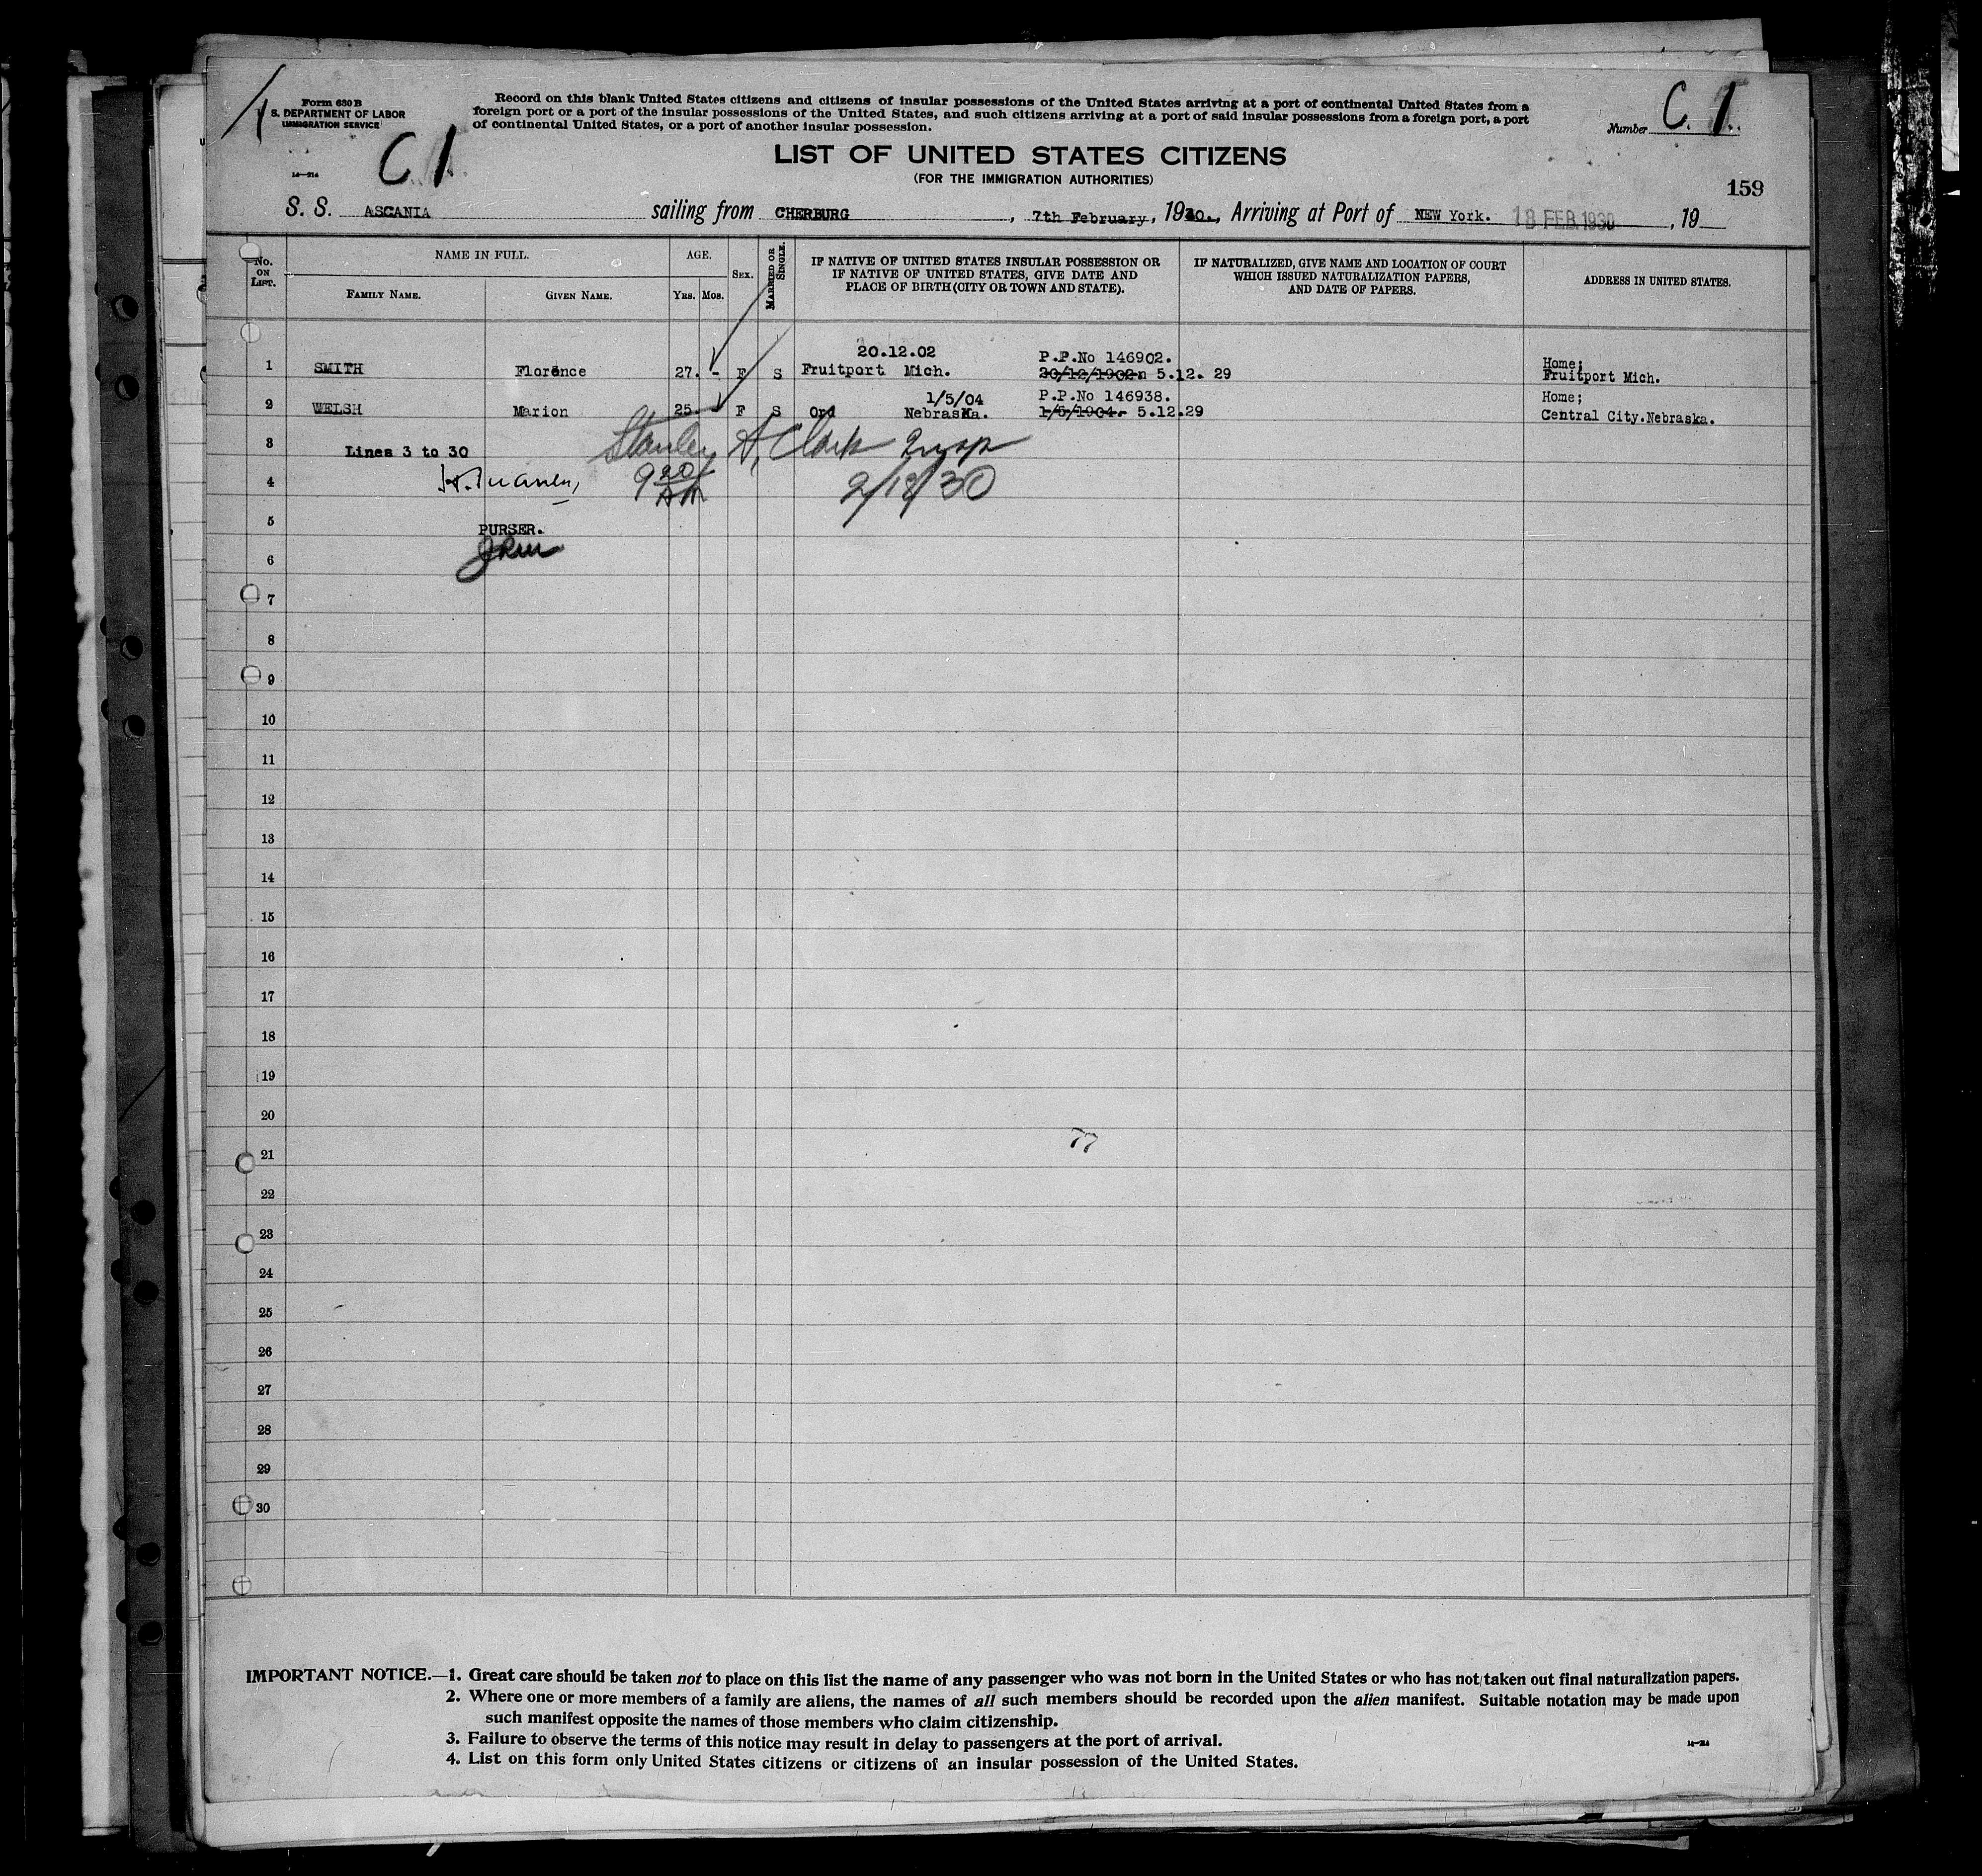 Form 630 B
S. DEPARTMENT OF LABOR
IMMIGRATION SERVICE
14—214
C 1
Record on this blank United States citizens and citizens of insular possessions of the United States arriving at a port of continental United States from a
foreign port or a port of the insular possessions of the United States, and such citizens arriving at a port of said insular possessions from a foreign port, a port
of continental United States, or a port of another insular possession.
Number C. 1.
LIST OF UNITED STATES CITIZENS
(FOR THE IMMIGRATION AUTHORITIES)
159
S. S. ASCANIA sailing from CHERBURG, 7th February, 1930., Arriving at Port of NEW York. 18 FEB 1930, 19
No. ON LIST.
NAME IN FULL.
FAMILY NAME. GIVEN NAME.
AGE.
Yrs. Mos.
SEX.
MARRIED OR SINGLE.
IF NATIVE OF UNITED STATES INSULAR POSSESSION OR
IF NATIVE OF UNITED STATES, GIVE DATE AND
PLACE OF BIRTH (CITY OR TOWN AND STATE).
IF NATURALIZED, GIVE NAME AND LOCATION OF COURT
WHICH ISSUED NATURALIZATION PAPERS,
AND DATE OF PAPERS.
ADDRESS IN UNITED STATES.
20.12.02 P.P.No 146902. Home;
1 SMITH Florence 27. - F S Fruitport Mich. 20/12/1902 5.12. 29 Fruitport Mich.
1/5/04 P.P.No 146938. Home;
2 WELSH Marion 25. - F S Ord Nebraska. 1/5/1904. 5.12.29 Central City.Nebraska.
3 Lines 3 to 30 Stanley A. Clark Insp
4 9 20 AM 2/18/30
5 PURSER.
6
7
8
9
10
11
12
13
14
15
16
17
18
19
20
77
21
22
23
24
25
26
27
28
29
30
IMPORTANT NOTICE.—1. Great care should be taken not to place on this list the name of any passenger who was not born in the United States or who has not taken out final naturalization papers.
2. Where one or more members of a family are aliens, the names of all such members should be recorded upon the alien manifest. Suitable notation may be made upon
such manifest opposite the names of those members who claim citizenship.
3. Failure to observe the terms of this notice may result in delay to passengers at the port of arrival.
4. List on this form only United States citizens or citizens of an insular possession of the United States.
14—214